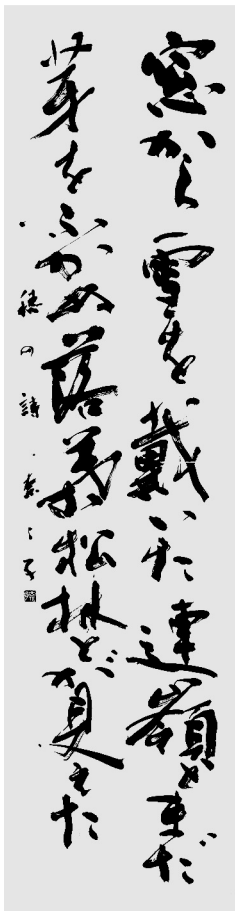 窓から雪を戴いた連嶺と未だ
芽をふかぬ落葉松林とが見えた
の詩